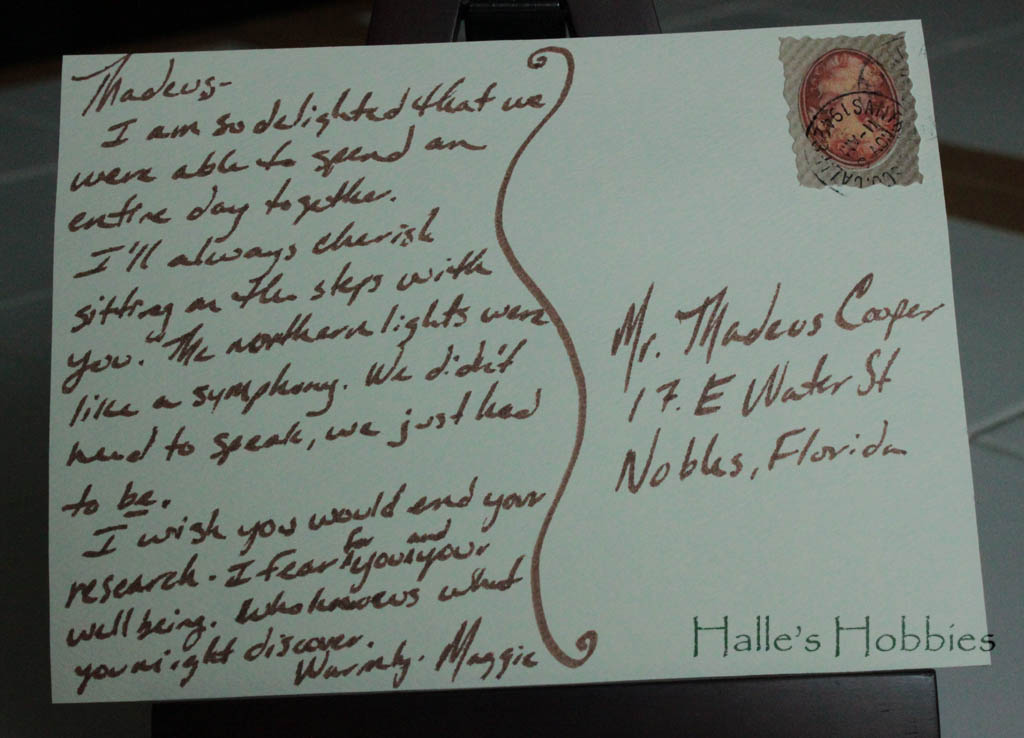 Thadeus-
I am so delighted that we
were able to spend an
entire day together.
I'll always cherish
sitting on the steps with
you. The northern lights were
like a symphony. We didn't
need to speak, we just had
to be.
I wish you would end your
research. I fear for you and your
well being. Who knows what
you might discover.
Warmly. Maggie
Mr. Thadeus Cooper
17. E Water St
Nobles, Florida
Halle's Hobbies